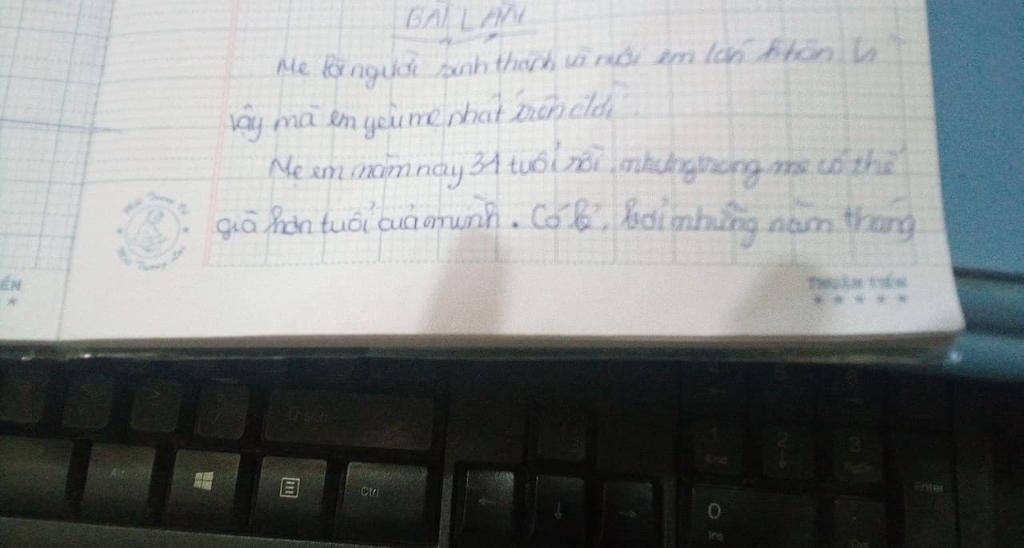 BÀI LÀM
Mẹ là người sinh thành và nuôi em lớn khôn vì
vậy mà em yêu mẹ nhất trên đời.
Mẹ em năm nay 34 tuổi rồi, nhưng trông mẹ có thể
già hơn tuổi của mình. Có lẽ, bởi những năm tháng
THUẬN TIẾN
ẾN
Shift
Alt
Ctrl
1
End
2
3
PgDn
Enter
0
Ins